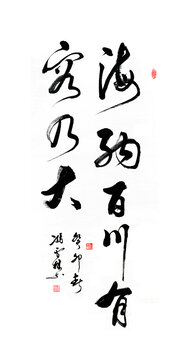 海纳百川有
容乃大
癸卯春